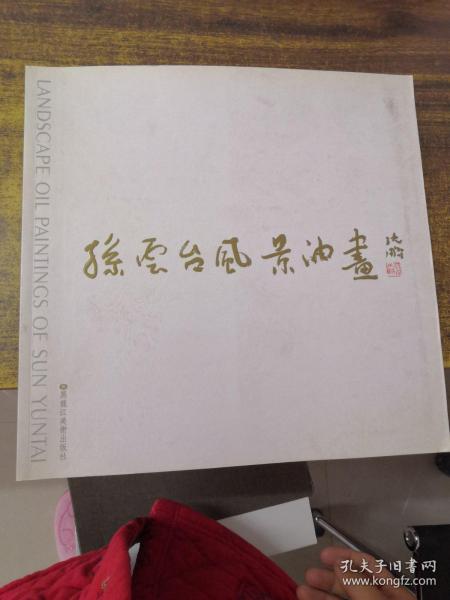 LANDSCAPE OIL PAINTINGS OF SUN YUNTAI
孫雲台風景油畫
沈鵬
黑龍江美術出版社
孔夫子旧书网
www.kongfz.com